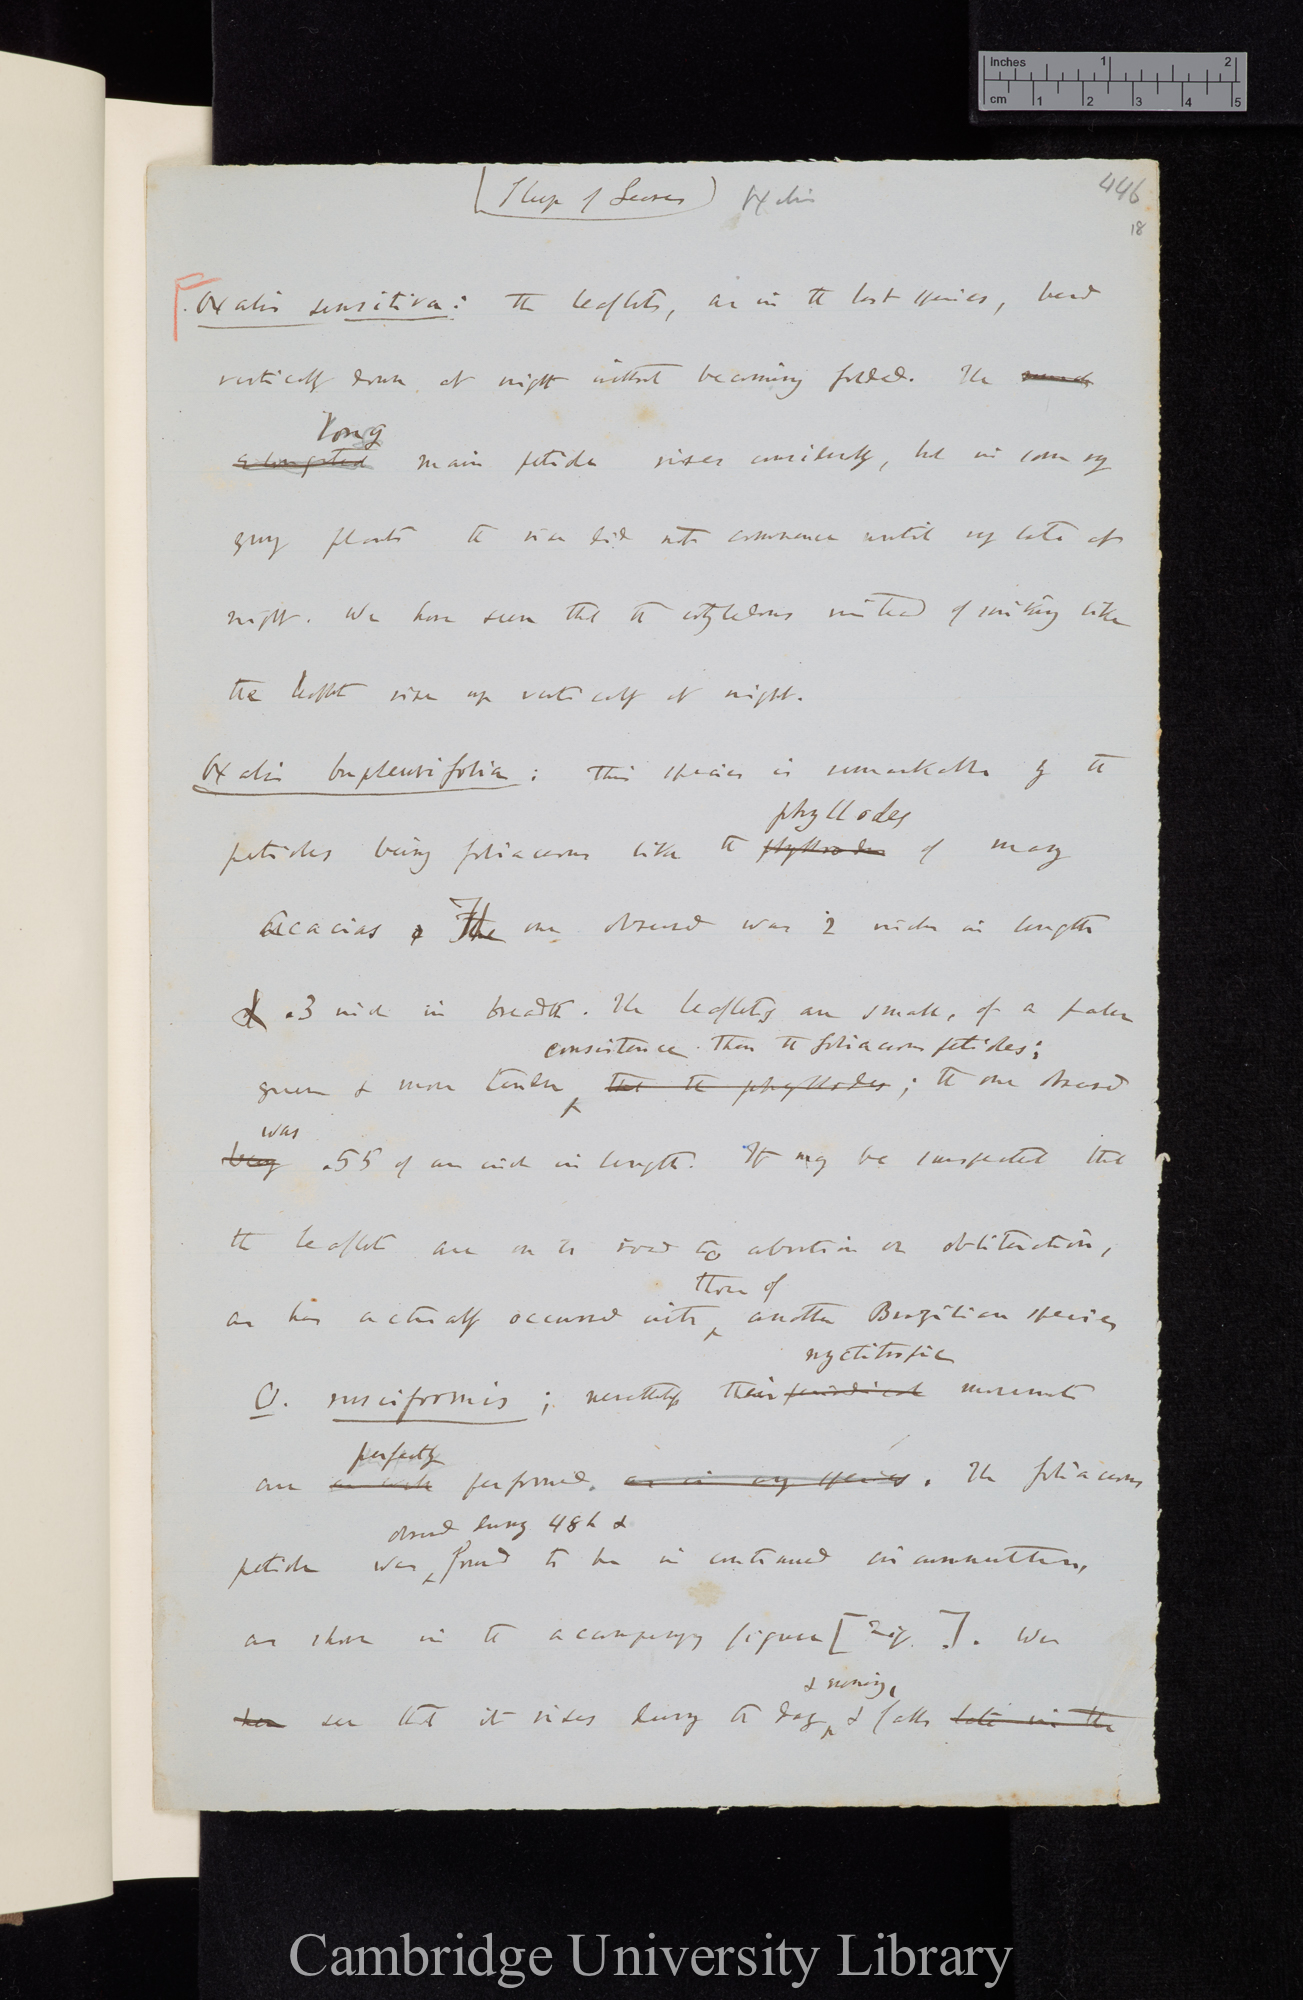 Inches 1 2
cm 1 2 3 4 5
446
18
(Sleep of Leaves) Oxalis
Oxalis sensitiva: the leaflets, as in the last species, bend
vertically down at night without becoming folded. The much
long
elongated main petiole rises considerably, but in some very
young plants the rise did not commence until very late at
night. We have seen that the cotyledons instead of sinking like
the leaflets rise up vertically at night.
Oxalis bupleurifolia: This species is remarkable by the
phyllodes
petioles being foliaceous like the phyllodes of many
Acacias. The one observed was 2 inches in length
& .3 inch in breadth. The leaflets are small, of a paler
consistence than the foliaceous petioles;
green & more tender that the phyllodes; the one observed
was
being .55 of an inch in length. It may be suspected that
the leaflets are on the road to abortion or obliteration,
those of
as has actually occurred with another Brazilian species
nyctitropic
O. rusciformis; nevertheless their periodical movements
perfectly
are as well performed, as in any species. The foliaceous
observed during 48h &
petiole was found to be in continued circumnutation,
as shown in the accompanying figure [Fig. ]. We
& evening,
see that it rises during the day & falls late in the
Cambridge University Library